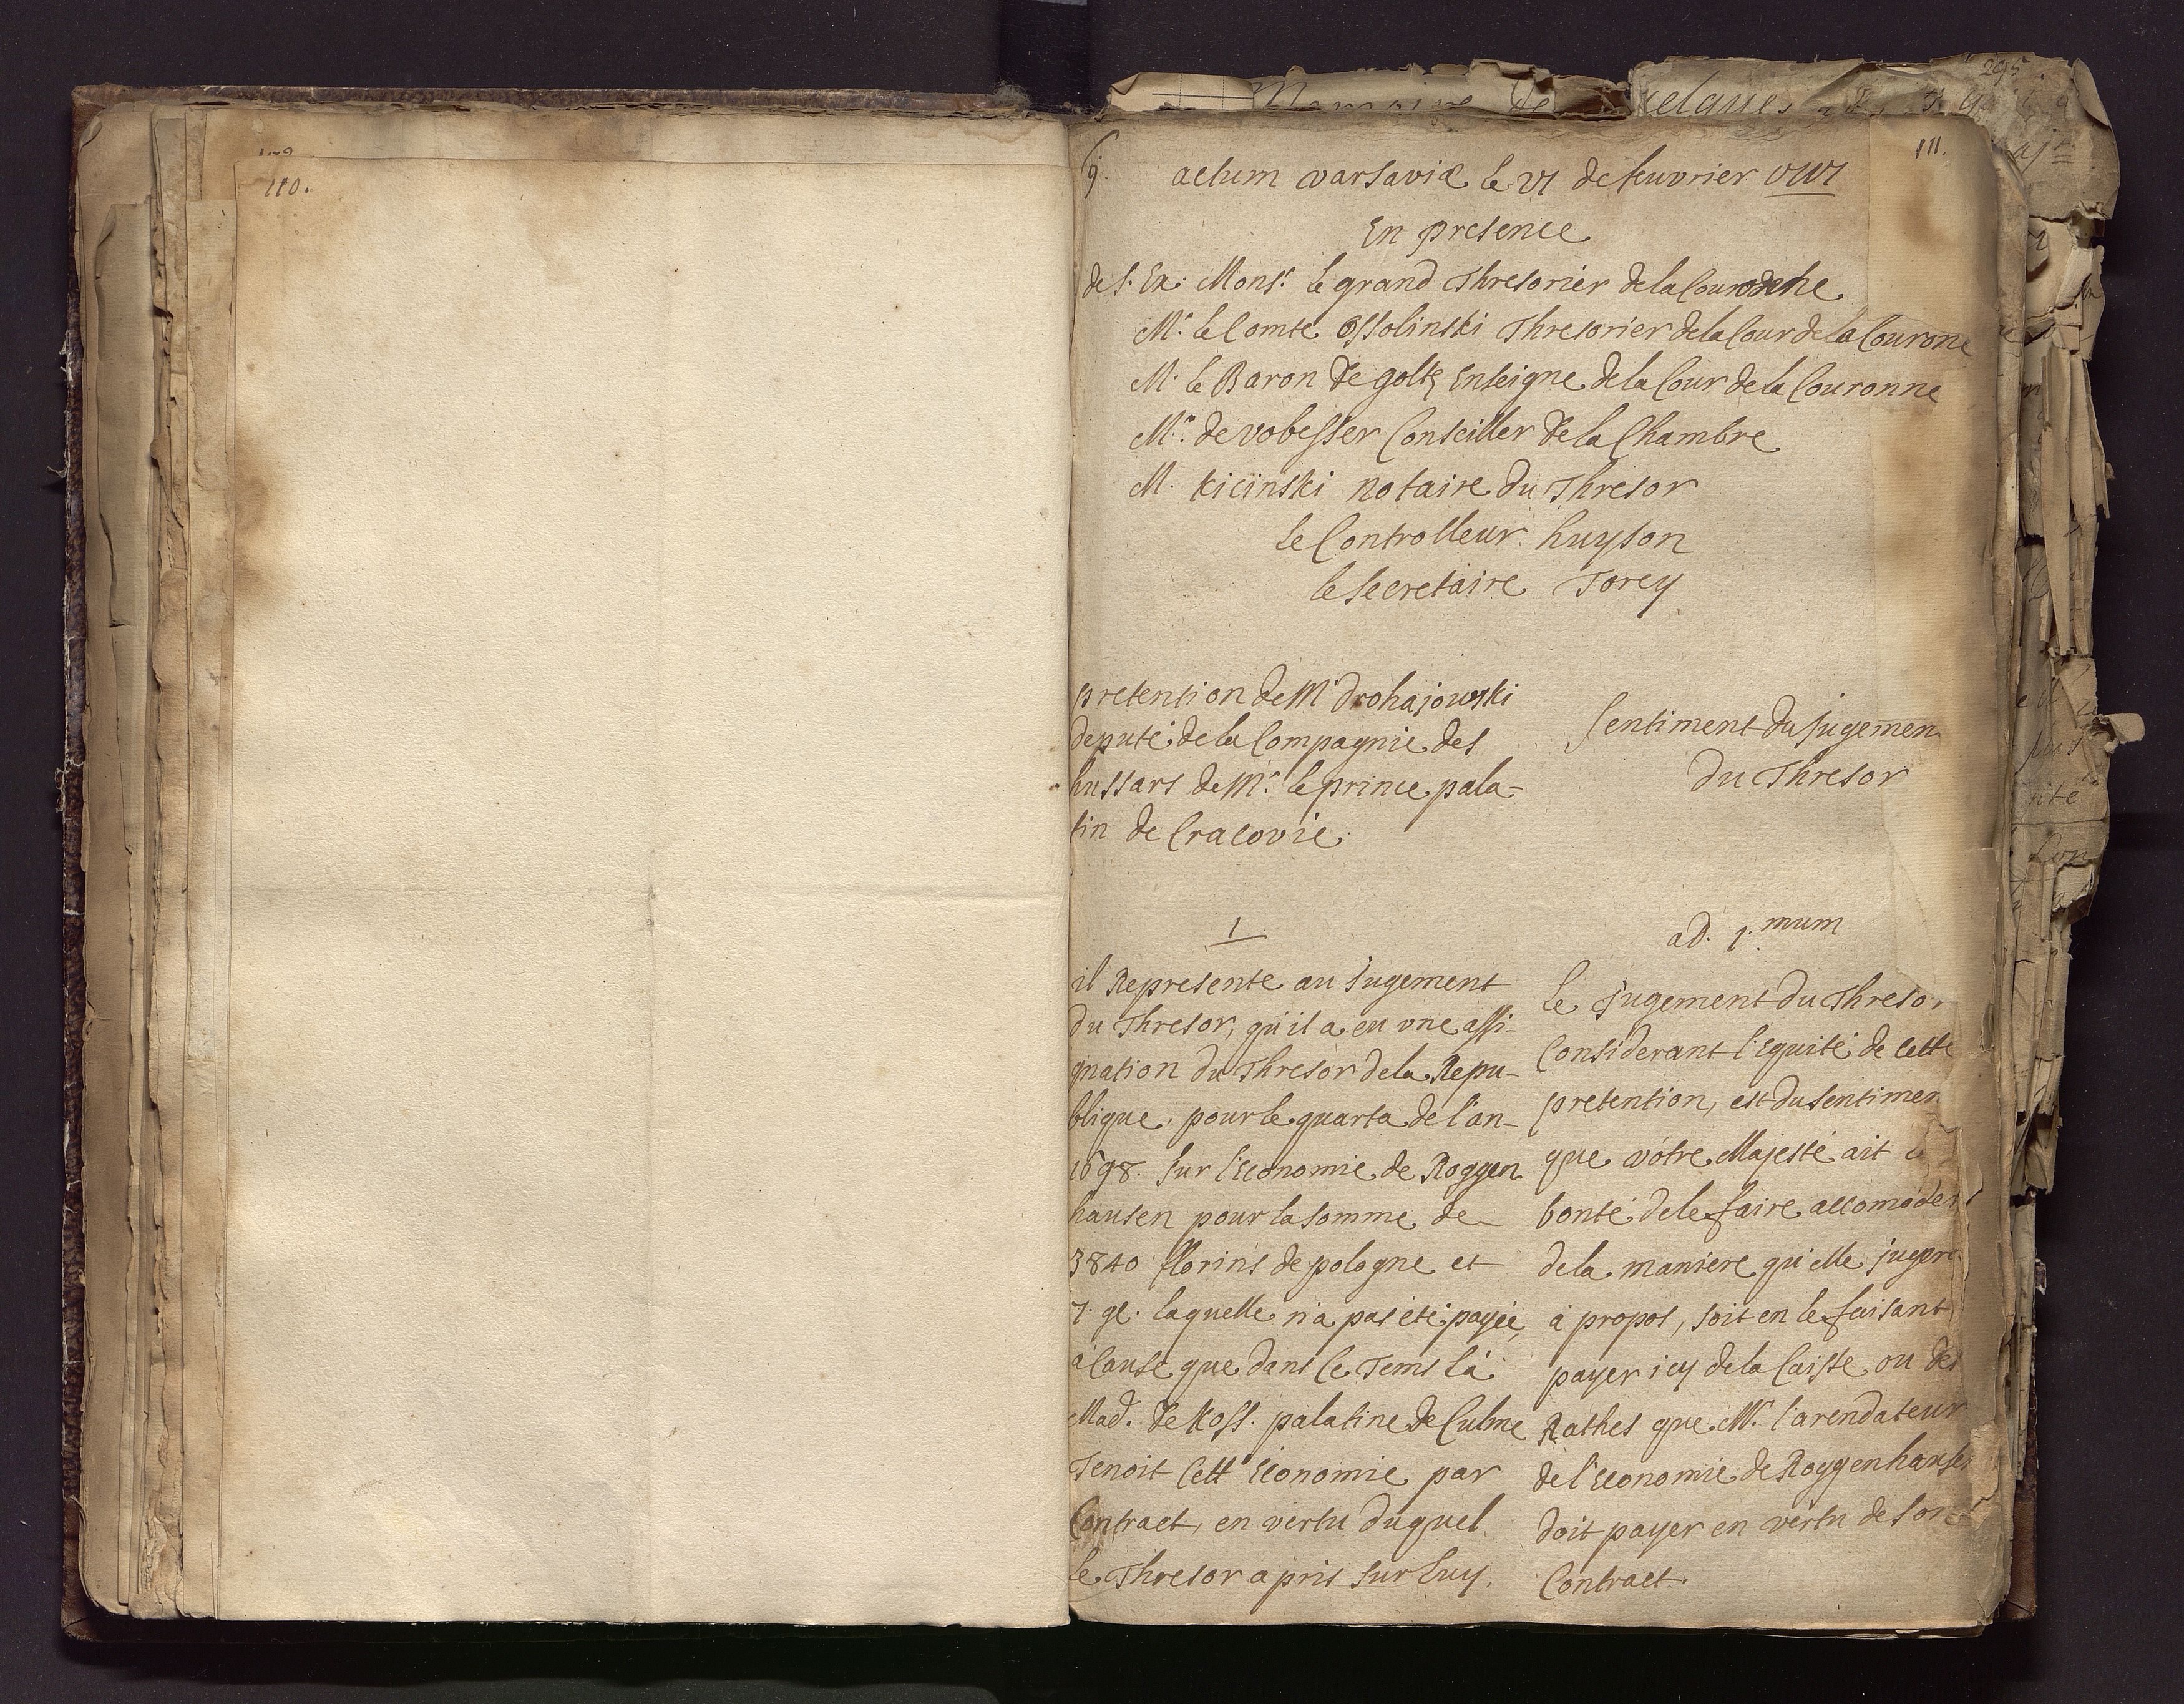 110.
111.
9.
actum varsaviæ le vi de feuvrier
En presence
de S. Ex: Mons.r le grand Thresorier de la Couronne
M.r le Comte Ossolinski Thresorier de la Cour de la Courone
M.r le Baron de goltz Enseigne de la Cour de la Couronne
M.r de vobesser Conseiller de la Chambre
M. kicinski notaire du Thresor
le Controlleur huyson
le Secretaire Torcy
pretention de M.r drohajowski
deputé de la Compagnie des
hussars de M.r le prince pala-
tin de Cracovie
Sentiment du jugemen
du Thresor
1
il Represente au Jugement
du Thresor, qu'il a eu une assi-
gnation du Thresor de la Repu-
blique pour le quarta de l'an-
1698. sur l'Economie de Roggen
hausen pour la somme de
3840 florins de pologne et
7. gl. laquelle n'a pas été payée,
à cause que dans ce Tems là
Mad. de Koss. palatine de Culme
Tenoit Cett' Economie par
Contract, en vertu duquel
le Thresor a pris sur luy.
ad. 1.mum
le Jugement du Thresor
Considerant l'Equité de cette
pretention, est du sentimen
que vôtre Majesté ait
bonté de le faire accomoder
de la maniere qu'elle jugera
à propos, soit en le faisant
payer icy de la Caisse ou des
Rathes que M.r l'arendateur
de l'Economie de Roggenhausen
doit payer en vertu de son
Contract.